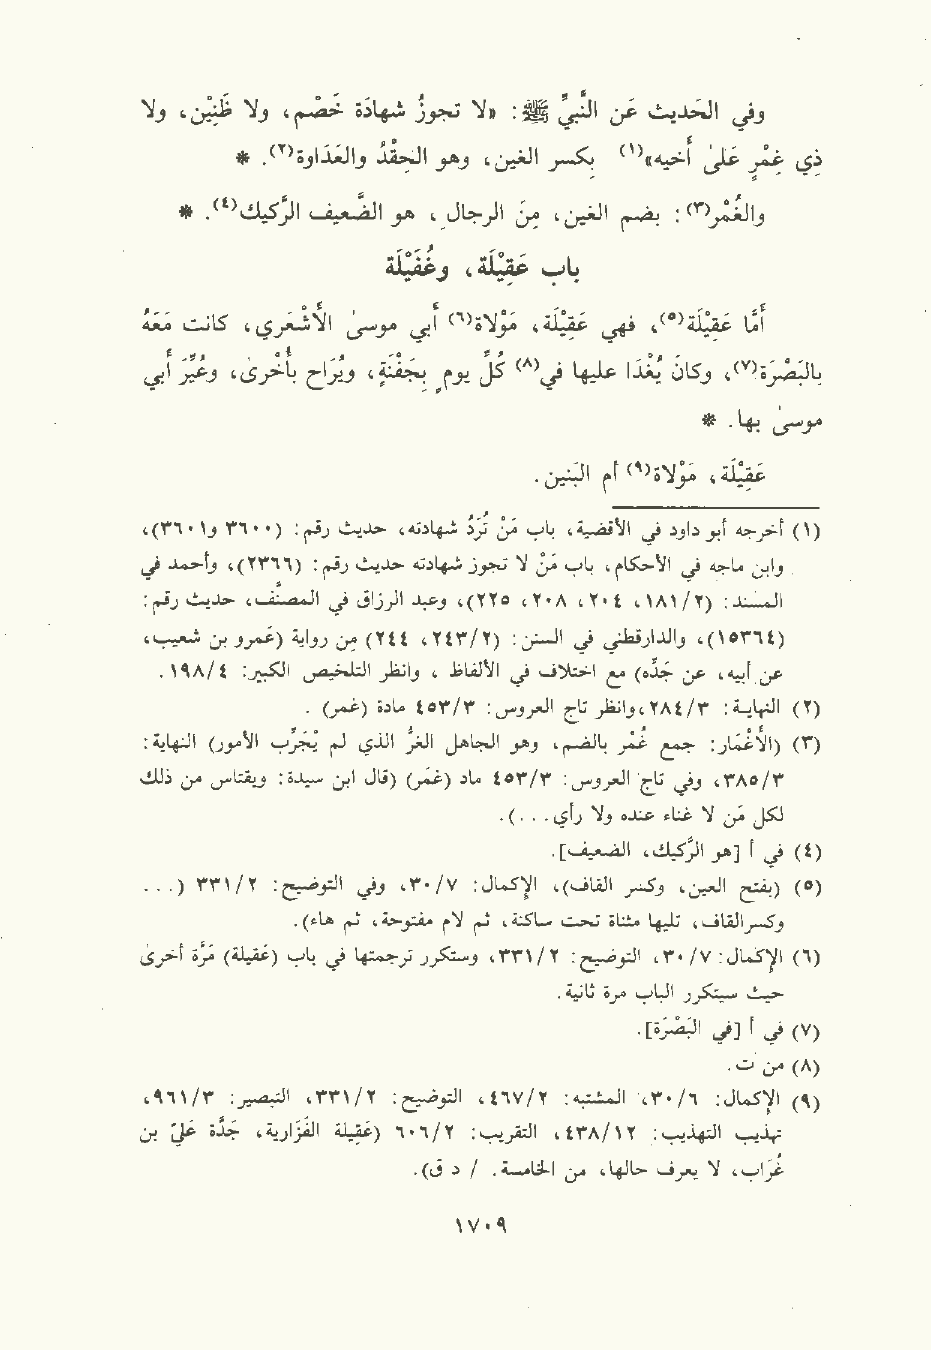 وفي الحَديث عَن النَّبيِّ ﷺ: «لا تجوزُ شهادَة خَصْم، ولا ظَنِيْن، ولا
ذِي غِمْرٍ عَلىٰ أَخيه»(١) بكِسر الغين، وهو الحِقْدُ والعَداوة(٢). *
والغُمْر(٣): بضم الغين، مِنَ الرجال، هو الضَّعيف الرَّكيك(٤). *
باب عَقِيْلَة، وغُفَيْلَة
أمَّا عَقِيْلَة(٥)، فهي عَقِيْلَة، مَوْلاة(٦) أبي موسىٰ الأشْعَري، كانت مَعَهُ
بالبَصْرَة(٧)، وكانَ يُغْدَا عليها في(٨) كُلِّ يومٍ بِجَفْنَةٍ، ويُرَاح بأخْرىٰ، وعُيِّرَ أبي
موسىٰ بها. *
عَقِيْلَة، مَوْلاة(٩) أم البَنين.
(١) أخرجه أبو داود في الأقضية، باب مَنْ تُرَدُّ شهادته، حديث رقم: (٣٦٠٠ و٣٦٠١)،
وابن ماجه في الأحكام، باب مَنْ لا تجوز شهادته حديث رقم: (٢٣٦٦)، وأحمد في
المسند: (٢/١٨١، ٢٠٤، ٢٠٨، ٢٢٥)، وعبد الرزاق في المصنَّف، حديث رقم:
(١٥٣٦٤)، والدارقطني في السنن: (٢/٢٤٣، ٢٤٤) من رواية (عَمرو بن شعيب،
عن أبيه، عن جَدِّه) مع اختلاف في الألفاظ ، وانظر التلخيص الكبير: ٤/١٩٨.
(٢) النهاية: ٣/٢٨٤،وانظر تاج العروس: ٣/٤٥٣ مادة (غمر) .
(٣) (الأغْمَار: جمع غُمر بالضم، وهو الجاهل الغرُّ الذي لم يُجَرِّب الأمور) النهاية:
٣/٣٨٥، وفي تاج العروس: ٣/٤٥٣ ماد (غَمر) (قال ابن سيدة: ويقتاس من ذلك
لكل مَن لا غناء عنده ولا رأي. . .).
(٤) في أ [هو الرَّكيك، الضعيف].
(٥) (بفتح العين، وكسر القاف)، الإكمال: ٧/٣٠، وفي التوضيح: ٢/٣٣١ (. . .
وكسرالقاف، تليها مثناة تحت ساكنة، ثم لام مفتوحة، ثم هاء).
(٦) الإكمال: ٧/٣٠، التوضيح: ٢/٣٣١، وستكرر ترجمتها في باب (عَقيلة) مَرَّة أخرىٰ
حيث سيتكرر الباب مرة ثانية.
(٧) في أ [في البَصْرَة].
(٨) من ت.
(٩) الإكمال: ٦/٣٠، المشتبه: ٢/٤٦٧، التوضيح: ٢/٣٣١، التبصير: ٣/٩٦١،
تهذيب التهذيب: ١٢/٤٣٨، التقريب: ٢/٦٠٦ (عَقِيلة الفَزَارية، جَدَّة عَليِّ بن
غُرَاب، لا يعرف حالها، من الخامسة. / د ق).
١٧٠٩